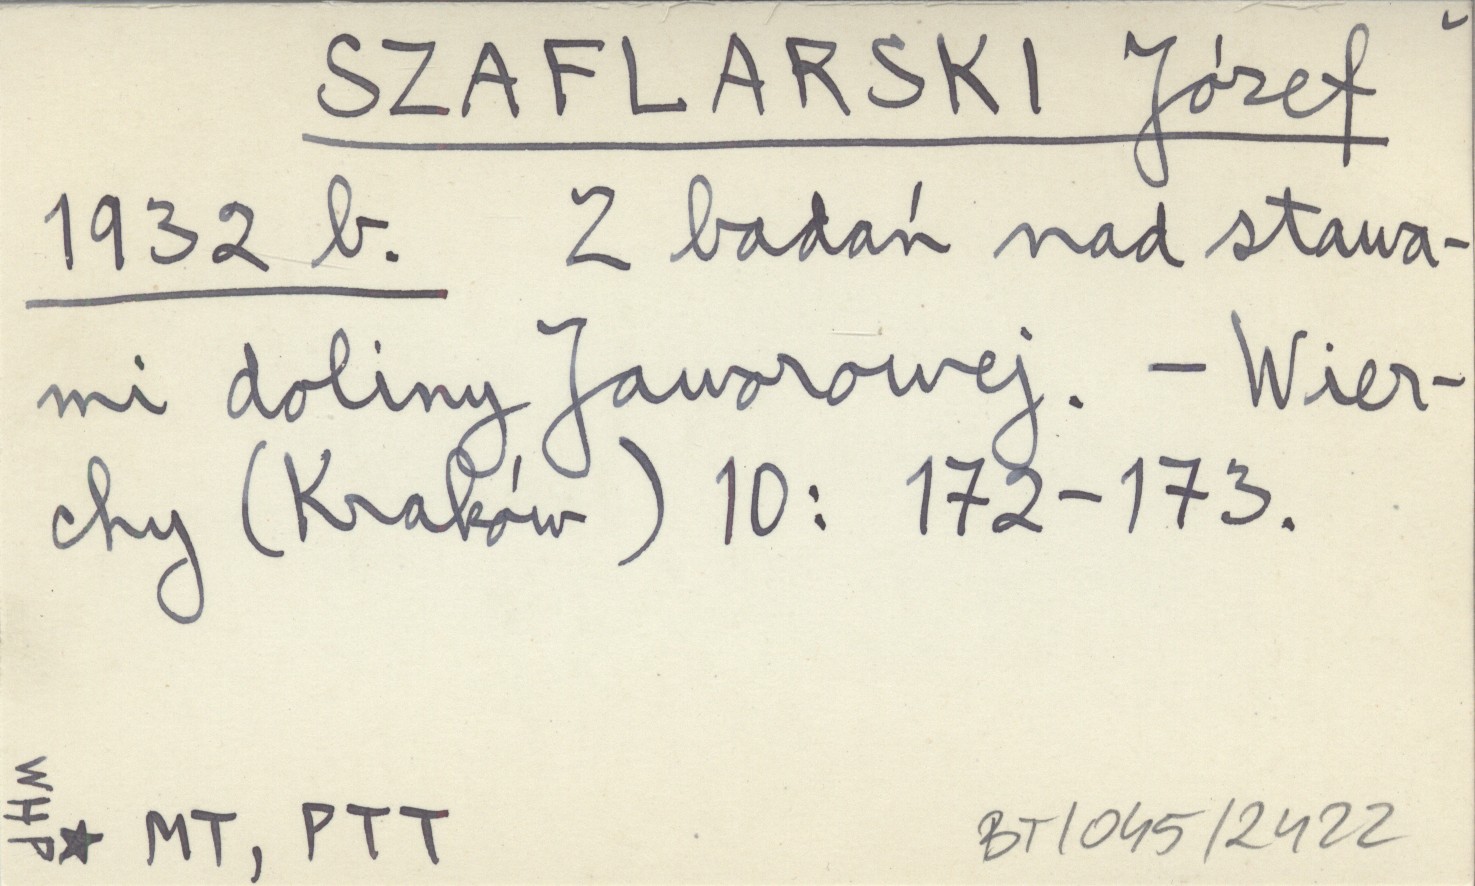 SZAFLARSKI Józef
1932 b. Z badań nad stawa-
mi doliny Jaworowej. – Wier-
chy (Kraków) 10: 172-173.
WHP
★ MT, PTT
BT/045/2422